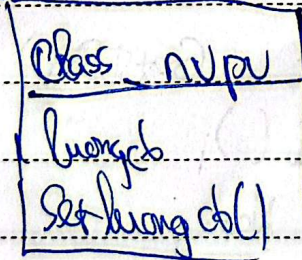 Class nvpv
luongcb
Set luong cb()